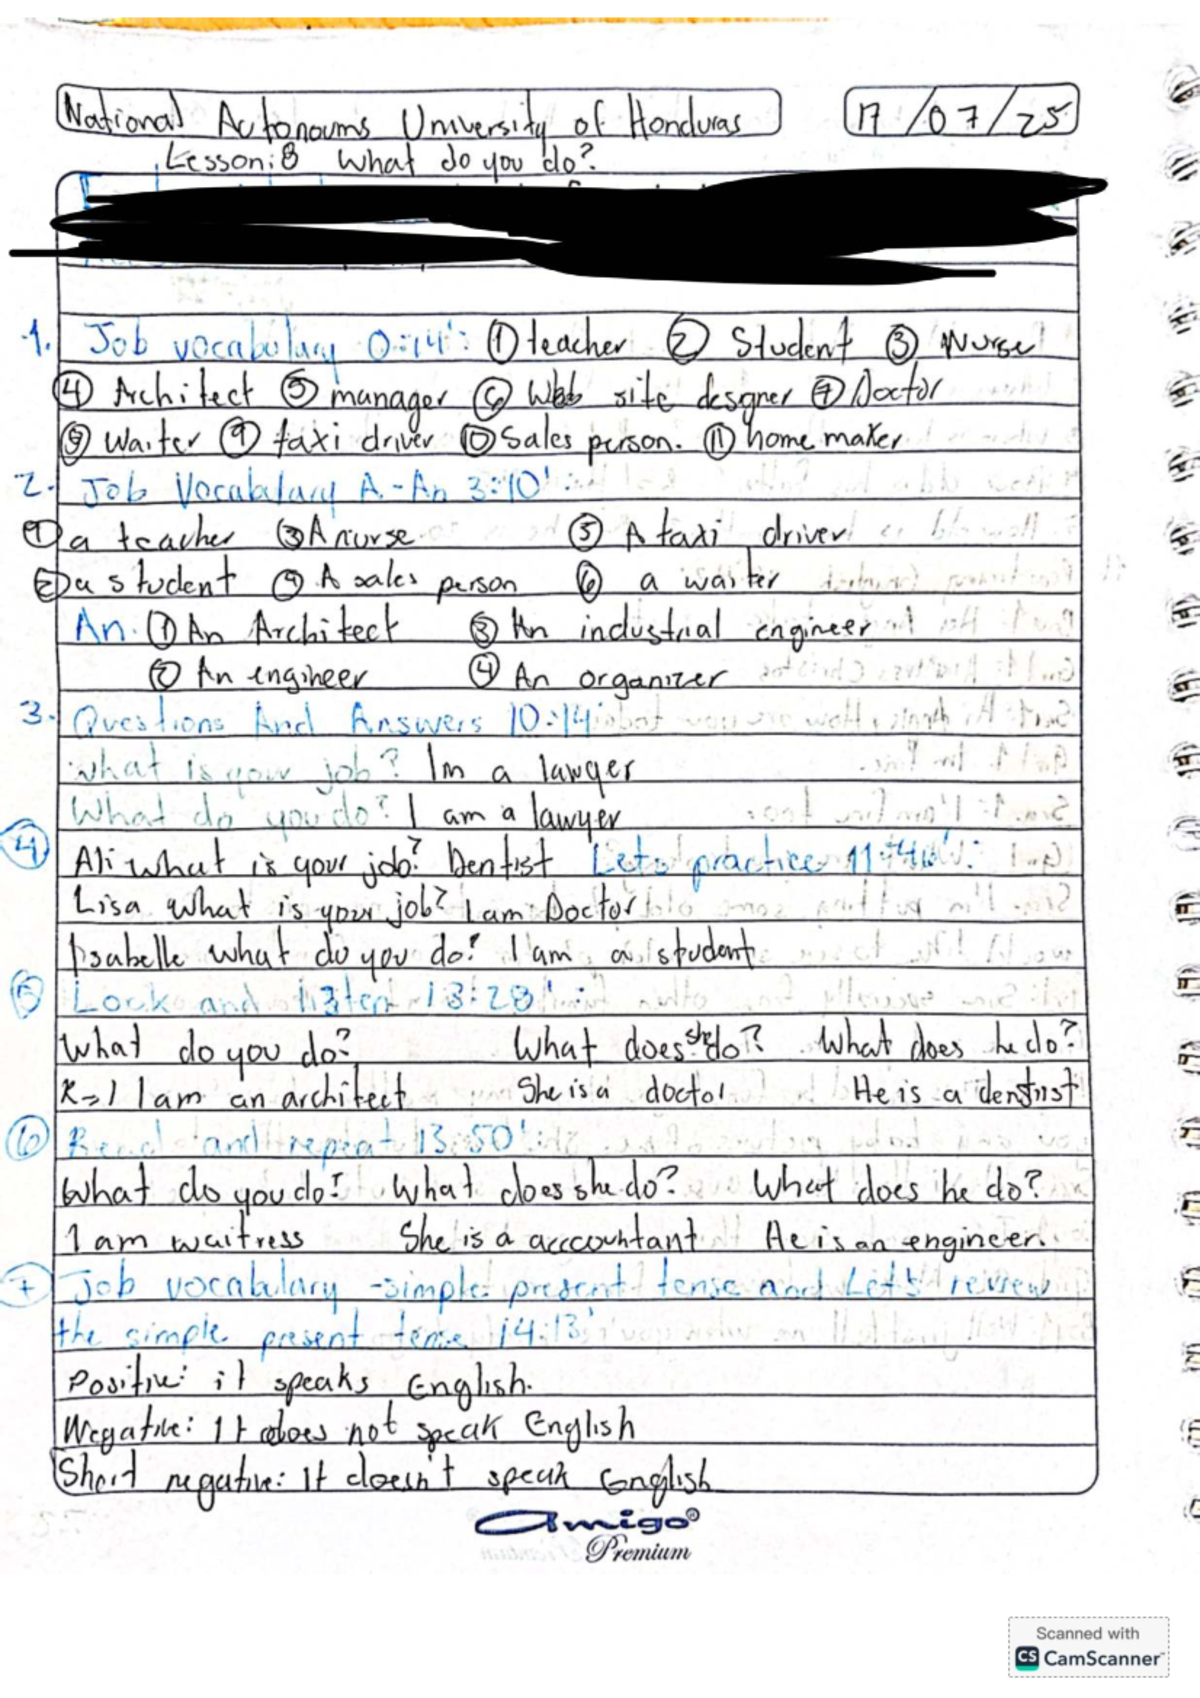 National Autonoums University of Honduras 17/07/25
Lesson: 8 What do you do?
1. Job vocabulary 0:14': ① teacher ② Student ③ Nurse
④ Architect ⑤ manager ⑥ Web site desgner ⑦ Doctor
⑧ waiter ⑨ taxi driver ⑩ Sales person. ⑪ home maker
2. Job Vocabulary A - An 3:10':
① a teacher ③ A nurse ⑤ A taxi driver
② a student ④ A sales person ⑥ a waiter
An. ① An Architect ③ An industrial engineer
② An engineer ④ An organizer
3. Questions And Answers 10:14
what is your job? Im a lawyer
What do you do? I am a lawyer
④ Ali what is your job? Dentist Lets practice 11:46':
Lisa what is your job? I am Doctor
Isabelle what do you do? I am a student
⑤ Look and listen 13:28':
What do you do? What does she do? What does he do?
R=> I am an architect She is a doctor He is a dentist
⑥ Read and repeat 13:50':
What do you do? What does she do? What does he do?
I am waitress She is a acccountant He is an engineer.
⑦ Job vocabulary - simple present tense and Let's review
the simple present tense 14:13'
Positive: it speaks English.
Negative: It does not speak English
Short negative: It doesn't speak English
Amigo®
Premium
Scanned with
CS CamScanner